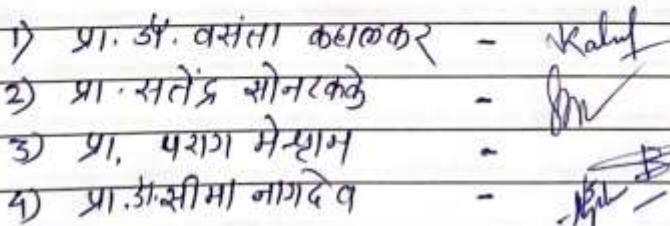 1) प्रा. डॉ. वसंता कहालकर -
2) प्रा. सतेंद्र सोनटक्के -
3) प्रा. पराग मेश्राम -
4) प्रा. डॉ. सीमा नागदेव -